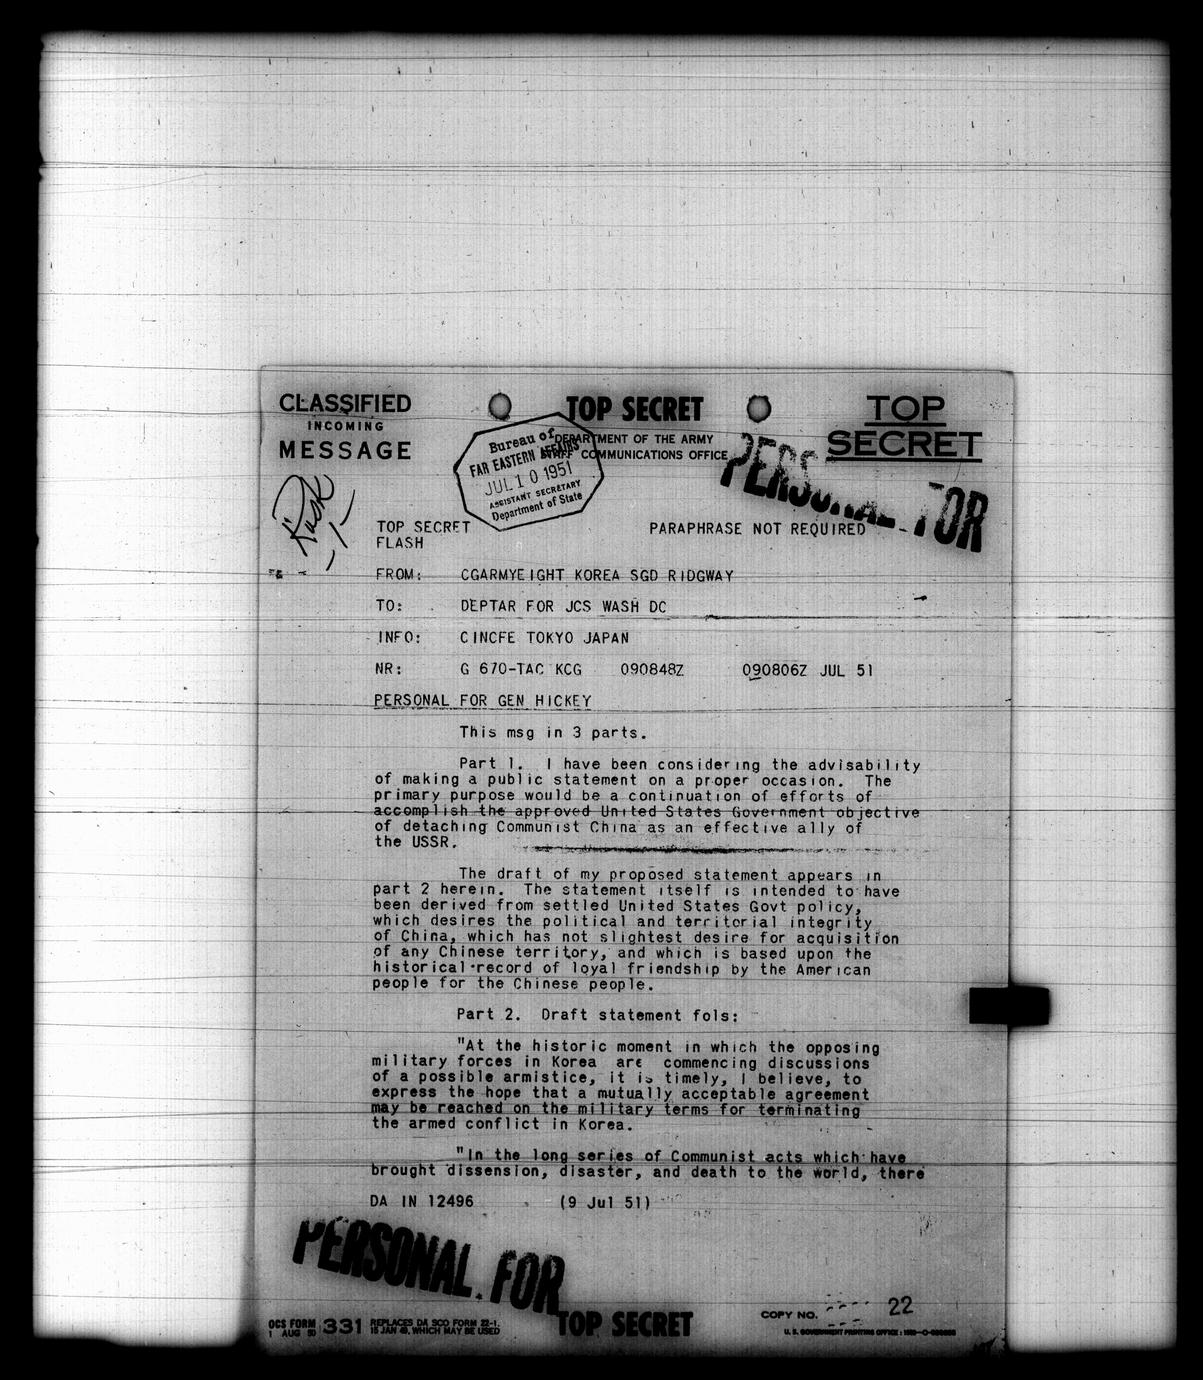 CLASSIFIED
INCOMING
MESSAGE
TOP SECRET
DEPARTMENT OF THE ARMY
STAFF COMMUNICATIONS OFFICE
TOP
SECRET
PERSONAL FOR
Bureau of
FAR EASTERN AFFAIRS
JUL 10 1951
ASSISTANT SECRETARY
Department of State
Rusk
TOP SECRET PARAPHRASE NOT REQUIRED
FLASH
FROM: CGARMYEIGHT KOREA SGD RIDGWAY
TO: DEPTAR FOR JCS WASH DC
INFO: CINCFE TOKYO JAPAN
NR: G 670-TAC KCG 090848Z 090806Z JUL 51
PERSONAL FOR GEN HICKEY
This msg in 3 parts.
Part 1. I have been considering the advisability
of making a public statement on a proper occasion. The
primary purpose would be a continuation of efforts of
accomplish the approved United States Government objective
of detaching Communist China as an effective ally of
the USSR.
The draft of my proposed statement appears in
part 2 herein. The statement itself is intended to have
been derived from settled United States Govt policy,
which desires the political and territorial integrity
of China, which has not slightest desire for acquisition
of any Chinese territory, and which is based upon the
historical record of loyal friendship by the American
people for the Chinese people.
Part 2. Draft statement fols:
"At the historic moment in which the opposing
military forces in Korea are commencing discussions
of a possible armistice, it is timely, I believe, to
express the hope that a mutually acceptable agreement
may be reached on the military terms for terminating
the armed conflict in Korea.
"In the long series of Communist acts which have
brought dissension, disaster, and death to the world, there
DA IN 12496 (9 Jul 51)
PERSONAL FOR
OCS FORM 331 REPLACES DA SCO FORM 22-1,
1 AUG 50 15 JAN 49, WHICH MAY BE USED
TOP SECRET
COPY NO. 22
U. S. GOVERNMENT PRINTING OFFICE